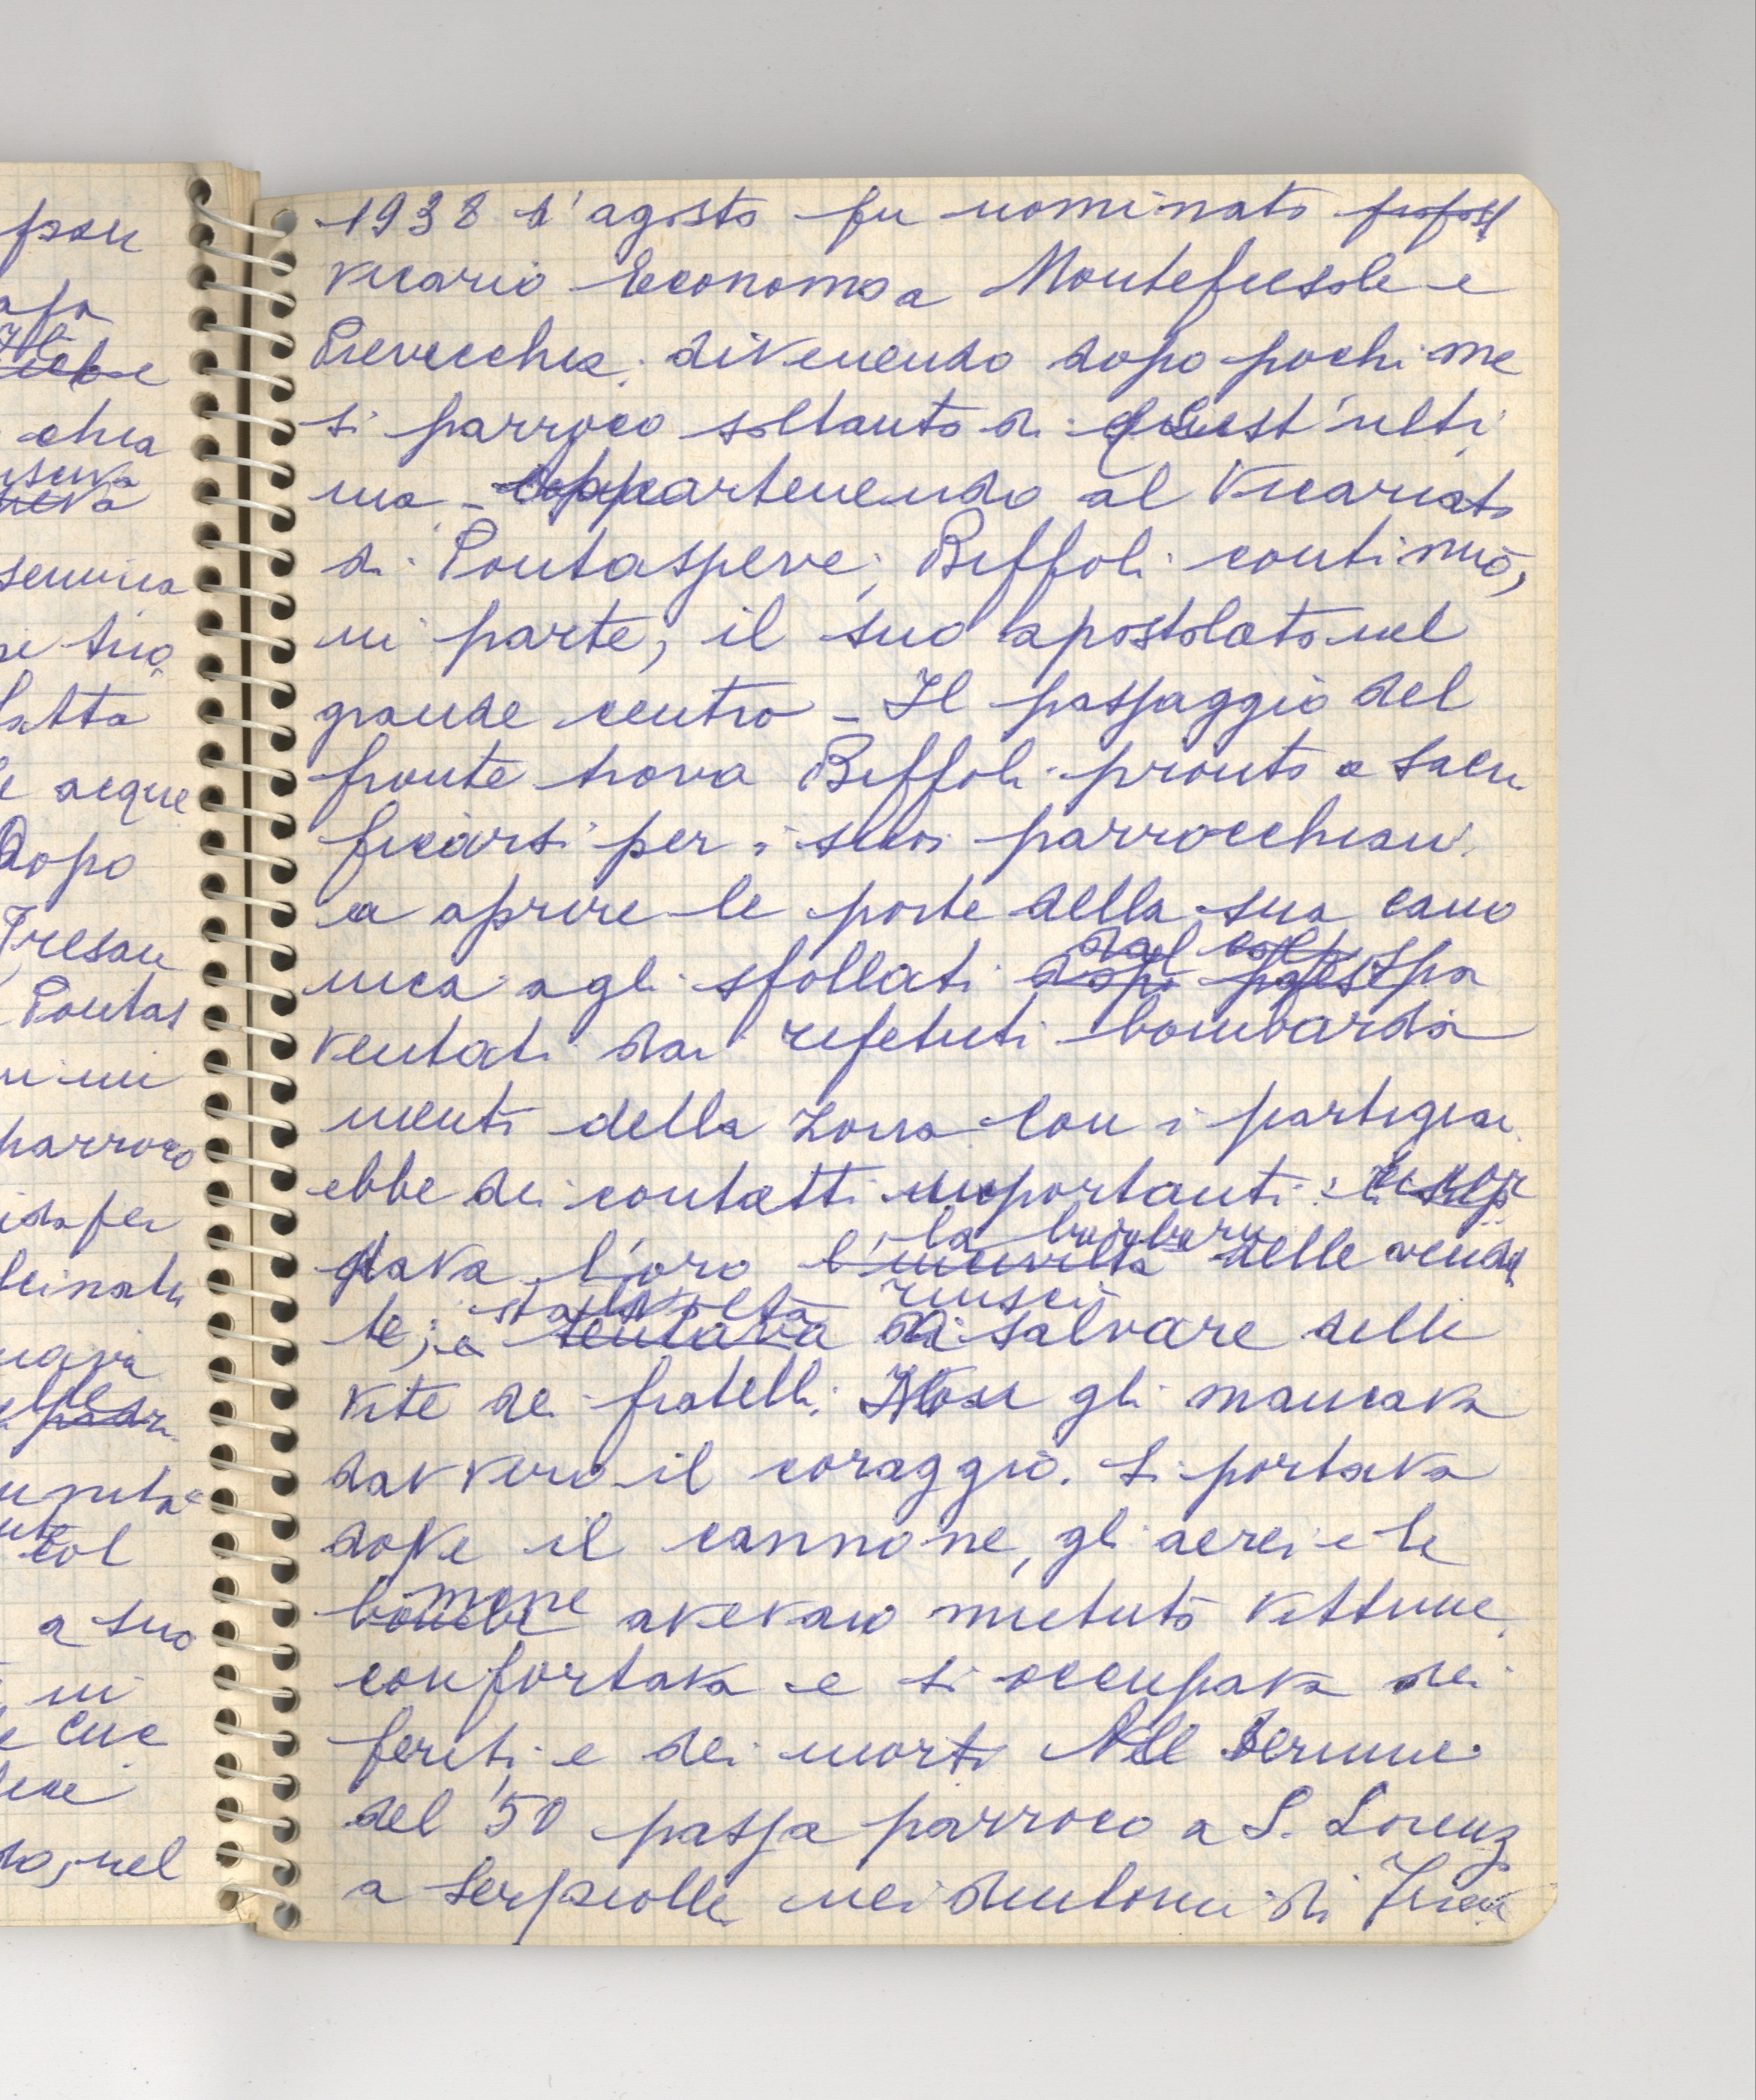 psu
apa
chia
seuwa
tuo
latta
acque
Dopo
Tresan
Pontas
parroco
col
a suo
in
cue
do, nel
1938 d'agosto fu nominato propost
Vicario Economo a Montefiesole e
Pievecchia, divenendo dopo pochi me
si parroco soltanto di quest'ulti
ma - appartenendo al Vicariato
di Pontassieve, Biffoli continuò,
in parte, il suo apostolato nel
grande centro - Il passaggio del
fronte trova Biffoli pronto a sacri
ficarsi per i suoi parrocchiani
a aprire le porte della sua cano
dal
nica agli sfollati spa
ventati dai ripetuti bombarda
menti della zona Con i partigiani
ebbe dei contatti importanti:
la barbarie
dava l'oro l'inciviltà delle vendet
qualche volta riuscì
te; e tentava di salvare delle
vite dei fratelli. Non gli mancava
davvero il coraggio. Si portava
dove il cannone, gli aerei e le
mine
bombe avevano mietuto vittime,
confortava e si occupava dei
feriti e dei morti Nel termine
del '50 passa parroco a S. Lorenzo
a Serpiolle nei dintorni di Firenze